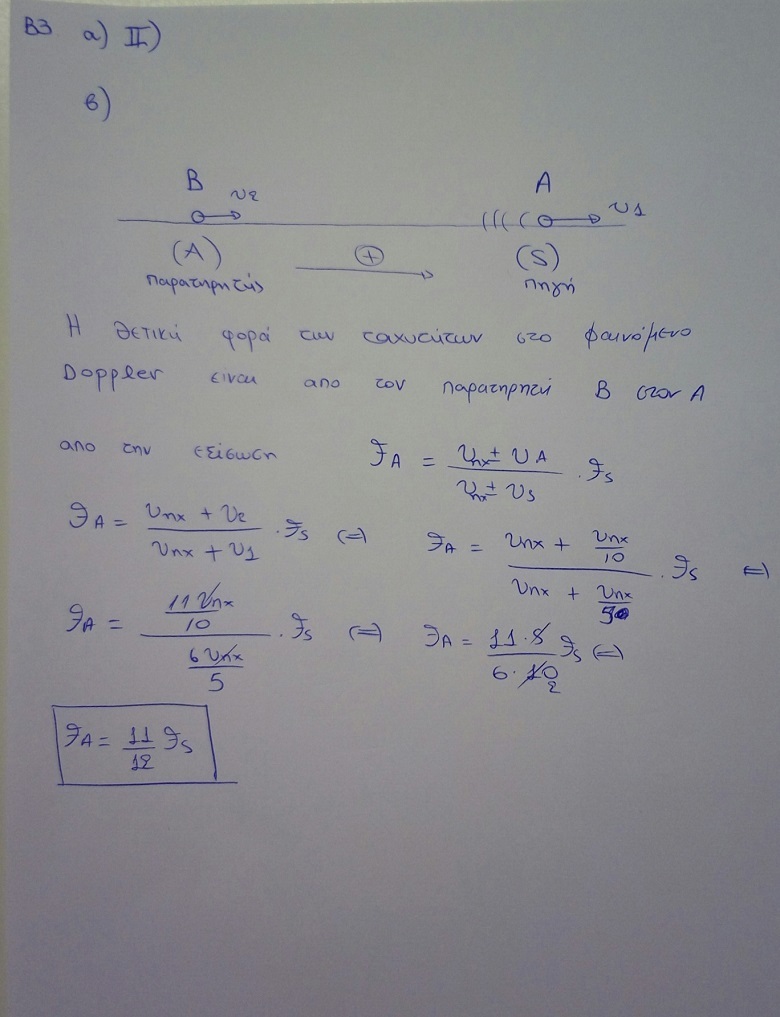 Β3 α) II)
β)
Β υ2 Α υ1
(Α) (+) (S)
παρατηρητής πηγή
Η θετική φορά των ταχυτήτων στο φαινόμενο
Doppler ειναι απο τον παρατηρητή Β στον Α
απο την εξίσωση F_A = (υηχ ± υ_A)/(υηχ ± υ_S) · F_S
F_A = (υηχ + υ2)/(υηχ + υ1) · F_S (=) F_A = (υηχ + υηχ/10)/(υηχ + υηχ/5) · F_S (=)
F_A = (11υηχ/10)/(6υηχ/5) · F_S (=) F_A = (11·5)/(6·10) F_S (=)
2
F_A = 11/12 F_S